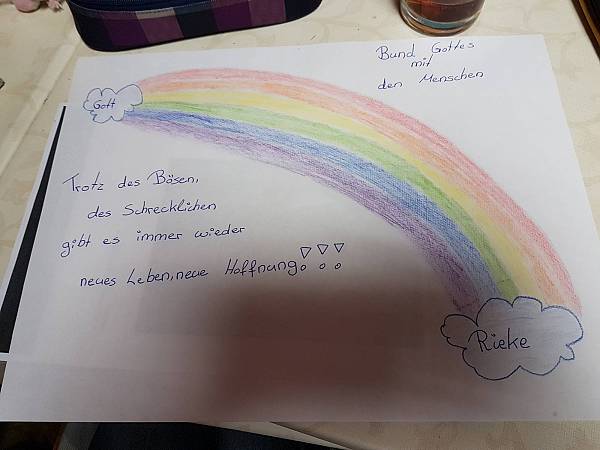 Bund Gottes
mit
den Menschen
Gott
Trotz des Bösen,
des Schrecklichen
gibt es immer wieder
neues Leben, neue Hoffnung!!!
Rieke